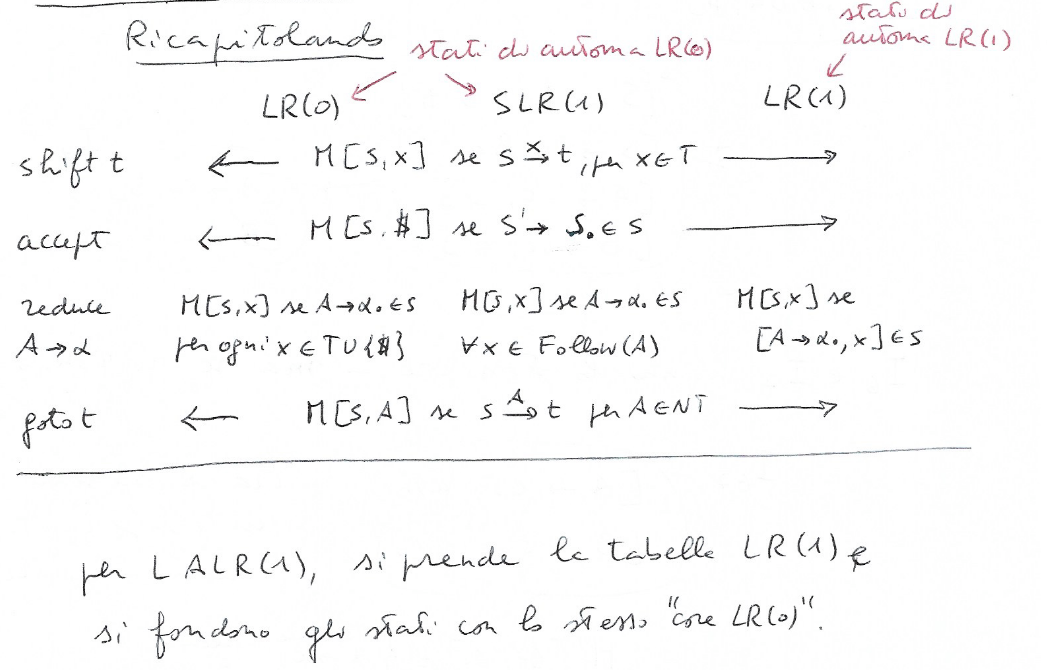 Ricapitolando
stati di automa LR(0)
stati di
automa LR(1)
LR(0) SLR(1) LR(1)
shift t ← M[s,x] se s →x t, per x∈T →
accept ← M[s,$] se S'→ S. ∈ s →
reduce M[s,x] se A→α. ∈ s M[s,x] se A→α. ∈ s M[s,x] se
A→α per ogni x ∈ T∪{$} ∀x ∈ Follow(A) [A→α., x] ∈ s
goto t ← M[s,A] se s →A t per A∈NT →
per LALR(1), si prende la tabella LR(1) e
si fondono gli stati con lo stesso "core LR(0)".